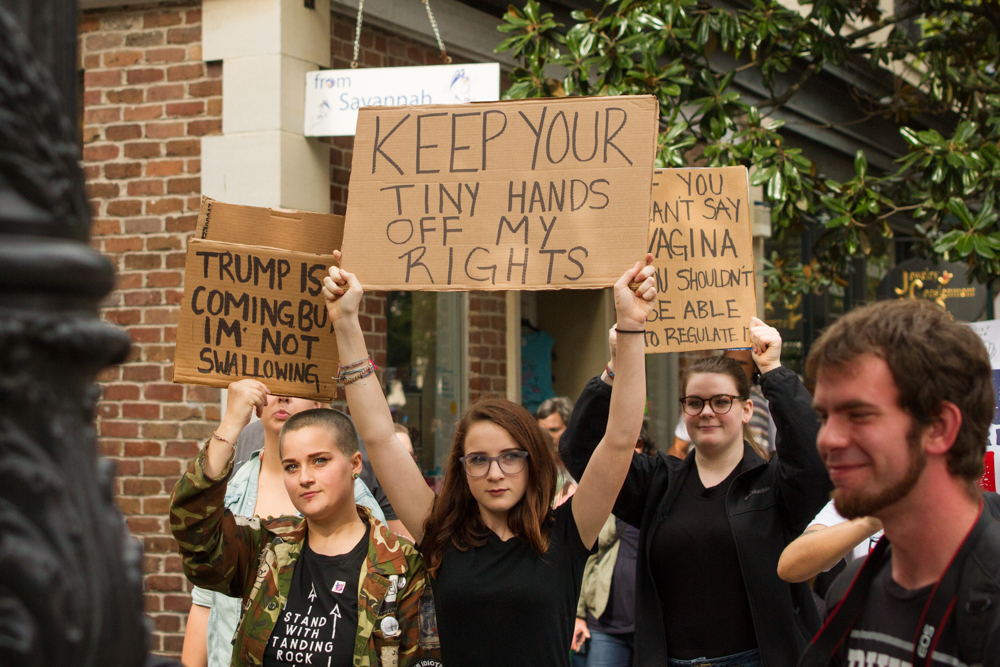 from
Savannah
KEEP YOUR
TINY HANDS
OFF MY
RIGHTS
TRUMP IS
COMING BU
IM' NOT
SWALLOWING
YOU
CAN'T SAY
VAGINA
YOU SHOULDN'T
BE ABLE
TO REGULATE I
I
STAND
WITH
STANDING
ROCK
EOS
IDIOT